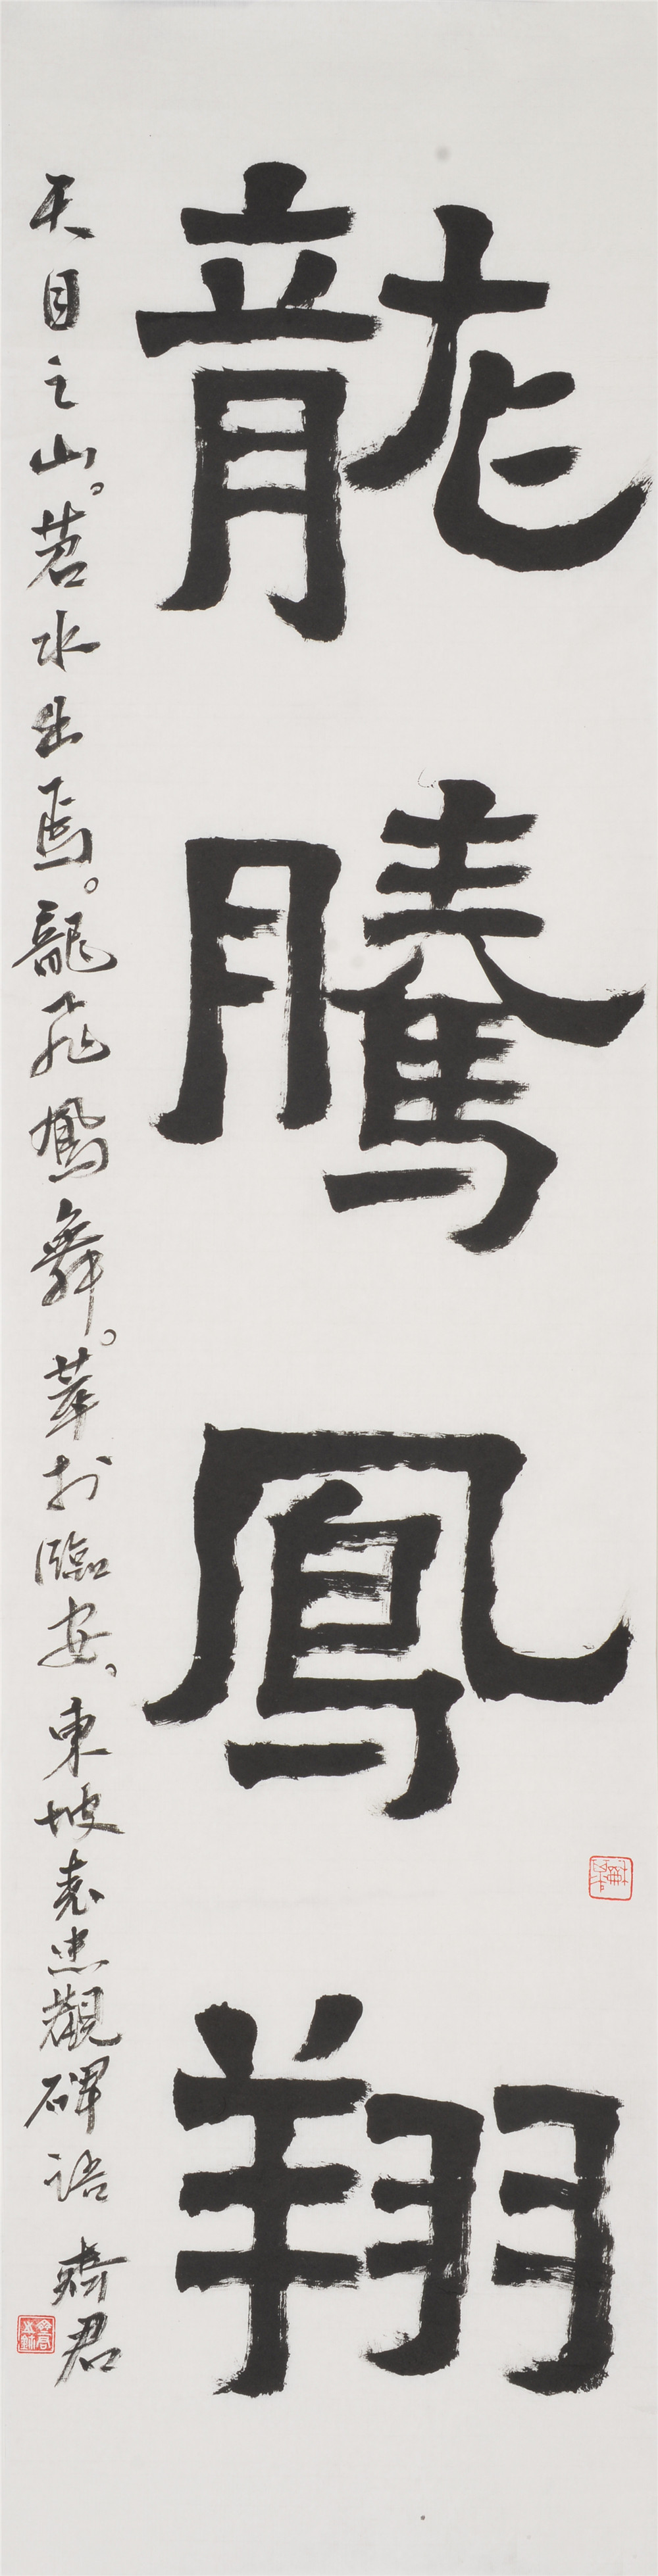 龍騰鳳翔
天目之山。苕水出焉。龍飛鳳舞。萃於臨安。東坡表忠觀碑語 君